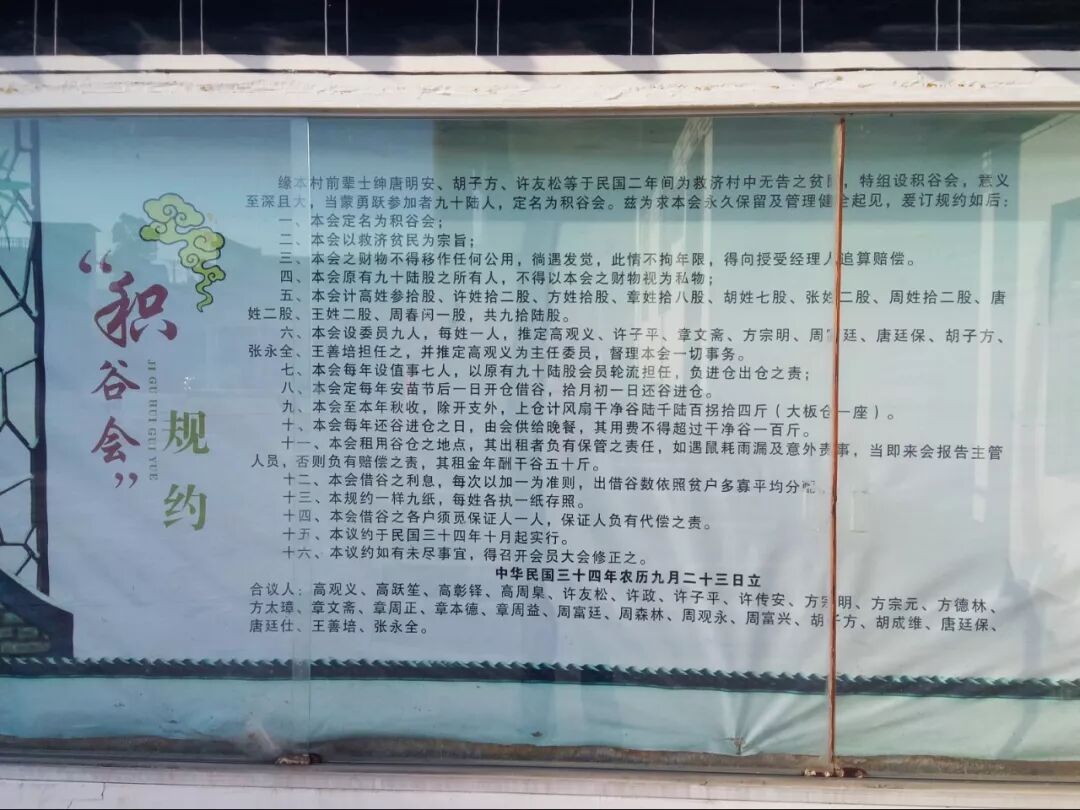 “积谷会”
规约
JI GU HUI GUI YUE
缘本村前辈士绅唐明安、胡子方、许友松等于民国二年间为救济村中无告之贫民，特组设积谷会，意义
至深且大，当蒙勇跃参加者九十陆人，定名为积谷会。兹为求本会永久保留及管理健全起见，爰订规约如后：
一、本会定名为积谷会；
二、本会以救济贫民为宗旨；
三、本会之财物不得移作任何公用，徜遇发觉，此情不拘年限，得向授受经理人追算赔偿。
四、本会原有九十陆股之所有人，不得以本会之财物视为私物；
五、本会计高姓参拾股、许姓拾二股、方姓拾股、章姓拾八股、胡姓七股、张姓二股、周姓拾二股、唐
姓二股、王姓二股、周春闪一股，共九拾陆股。
六、本会设委员九人，每姓一人，推定高观义、许子平、章文斋、方宗明、周富廷、唐廷保、胡子方、
张永全、王善培担任之，并推定高观义为主任委员，督理本会一切事务。
七、本会每年设值事七人，以原有九十陆股会员轮流担任，负进仓出仓之责；
八、本会定每年安苗节后一日开仓借谷，拾月初一日还谷进仓。
九、本会至本年秋收，除开支外，上仓计风扇干净谷陆千陆百拐拾四斤（大板仓一座）。
十、本会每年还谷进仓之日，由会供给晚餐，其用费不得超过干净谷一百斤。
十一、本会租用谷仓之地点，其出租者负有保管之责任，如遇鼠耗雨漏及意外责事，当即来会报告主管
人员，否则负有赔偿之责，其租金年酬干谷五十斤。
十二、本会借谷之利息，每次以加一为准则，出借谷数依照贫户多寡平均分配。
十三、本规约一样九纸，每姓各执一纸存照。
十四、本会借谷之各户须觅保证人一人，保证人负有代偿之责。
十五、本议约于民国三十四年十月起实行。
十六、本议约如有未尽事宜，得召开会员大会修正之。
中华民国三十四年农历九月二十三日立
合议人：高观义、高跃笙、高彰铎、高周臬、许友松、许政、许子平、许传安、方宗明、方宗元、方德林、
方太璋、章文斋、章周正、章本德、章周益、周富廷、周森林、周观永、周富兴、胡子方、胡成维、唐廷保、
唐廷仕、王善培、张永全。